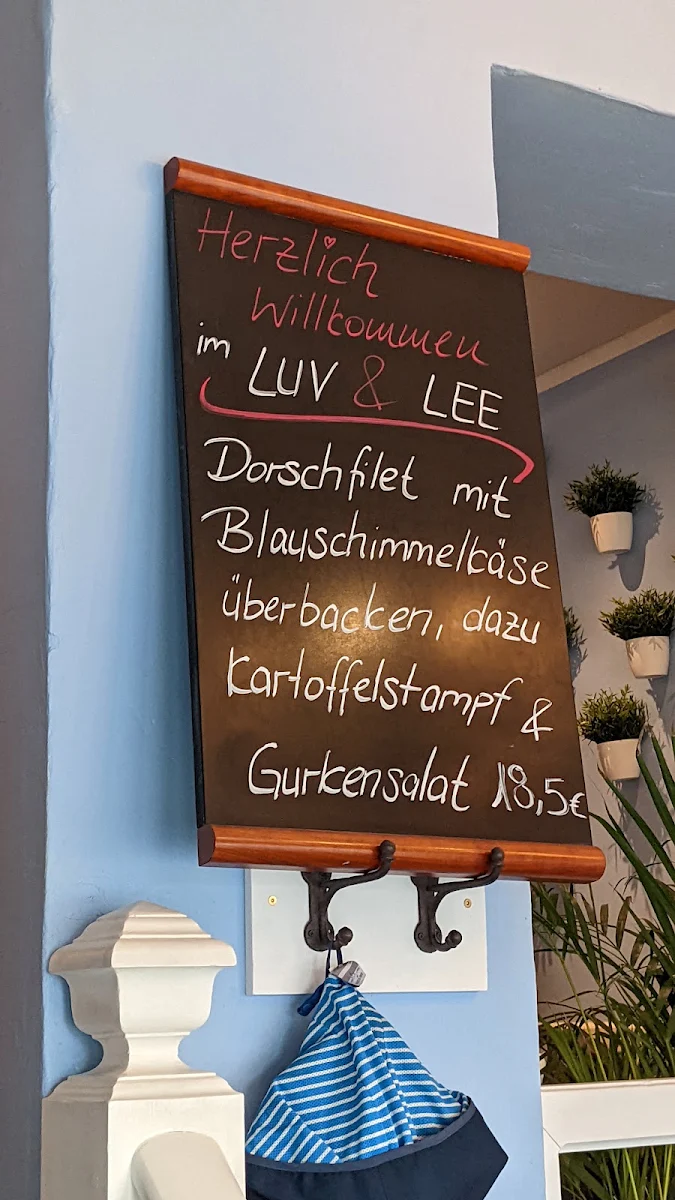 Herzlich
Willkommen
im LUV & LEE
Dorschfilet mit
Blauschimmelkäse
überbacken, dazu
Kartoffelstampf &
Gurkensalat 18,5€